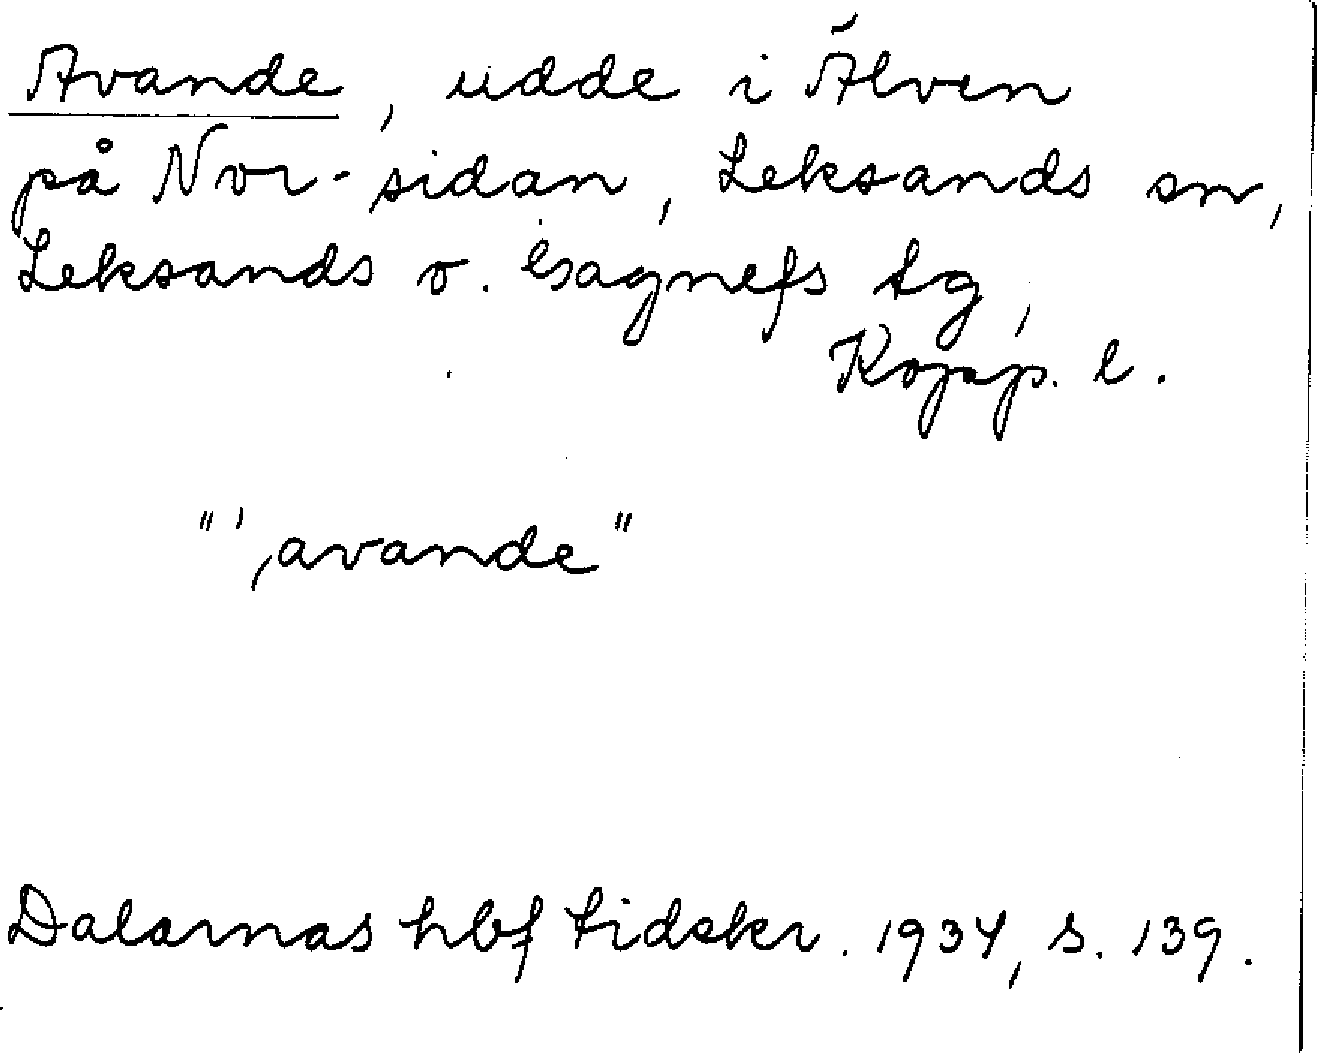 Avande, udde i Älven
på Nor-sidan, Leksands sn,
Leksands o. Gagnefs tg,
Kopp. l.
"',avande"
Dalarnas hbf tidskr. 1934, s. 139.